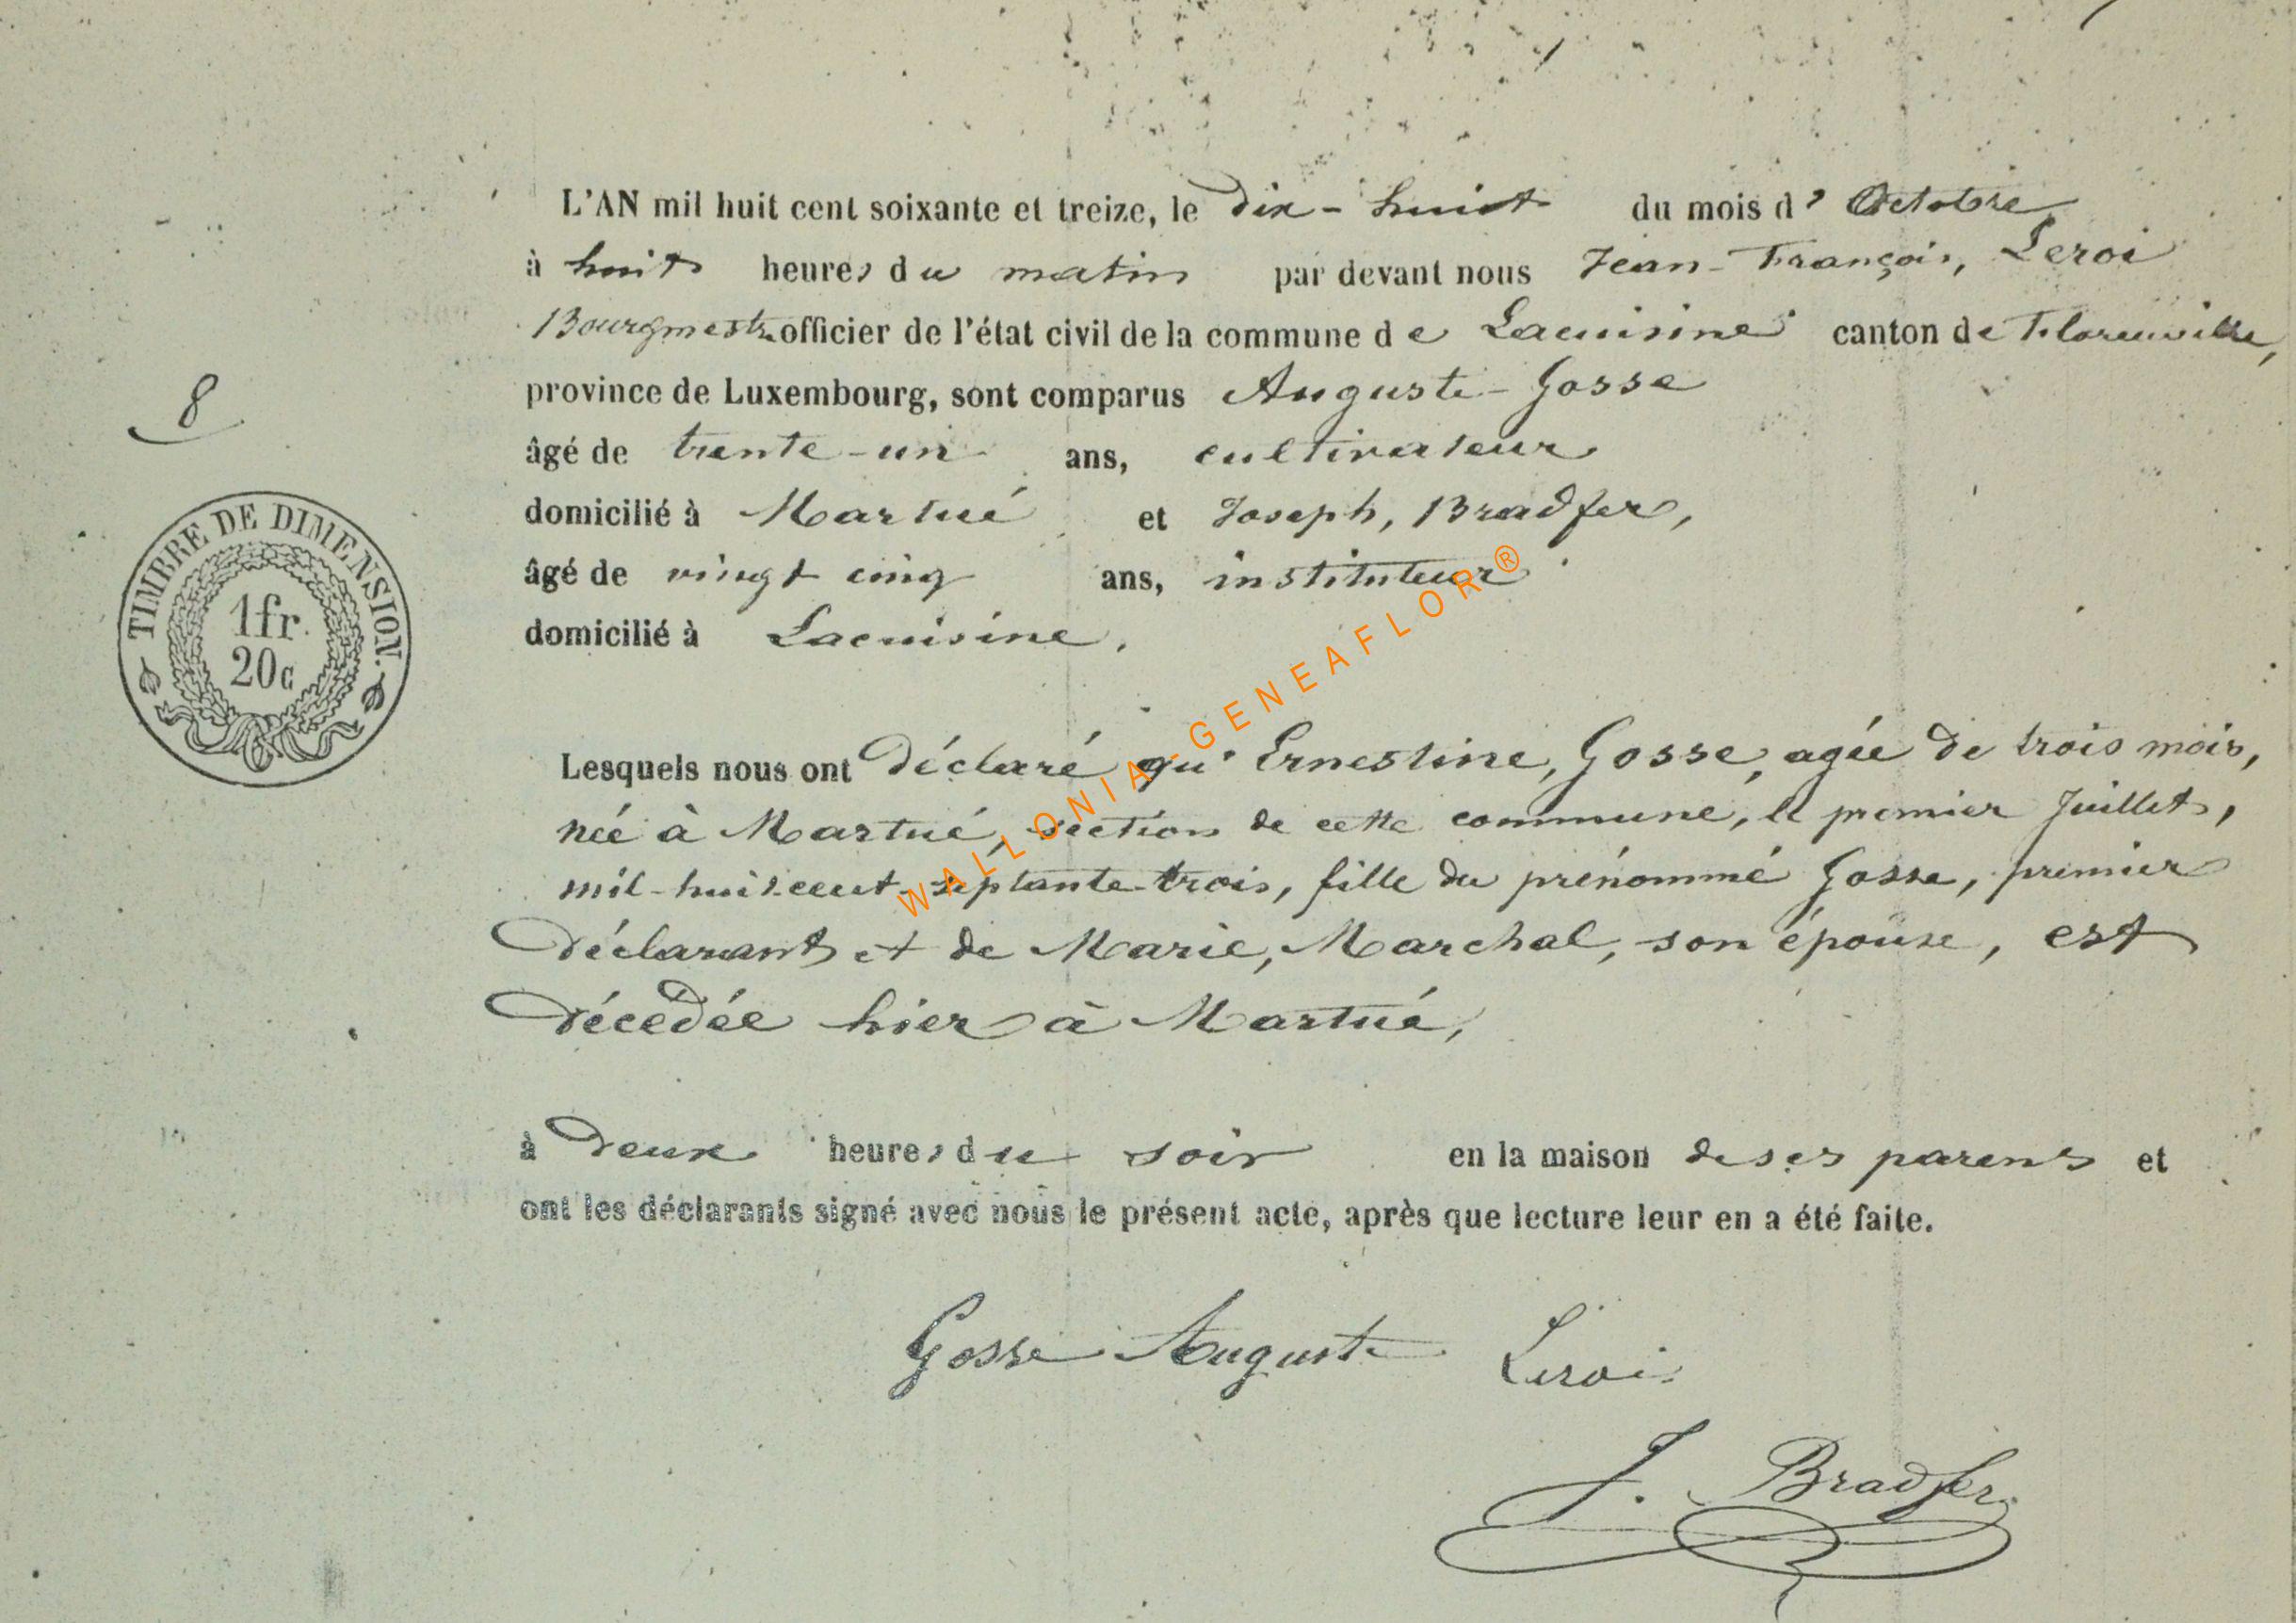 L'AN mil huit cent soixante et treize, le dix-huit du mois d'Octobre
à huit heures du matin par devant nous Jean-François, Leroi
Bourgmestre officier de l'état civil de la commune de Lacuisine canton de Florenville,
province de Luxembourg, sont comparus Auguste-Gosse
âgé de trente-un ans, cultivateur
8
domicilié à Martué et Joseph, Bradfer,
âgé de vingt cinq ans, instituteur
domicilié à Lacuisine.
TIMBRE DE DIMENSION.
1fr.
20c
WALLONIA-GENEAFLOR®
Lesquels nous ont déclaré qu'Ernestine, Gosse, agée de trois mois,
née à Martué, section de cette commune, le premier Juillet,
mil-huit-cent-septante-trois, fille du prénommé Gosse, premier
déclarant et de Marie, Marchal, son épouse, est
décedée hier à Martué,
à deux heures du soir en la maison de ses parens et
ont les déclarants signé avec nous le présent acte, après que lecture leur en a été faite.
Gosse Auguste Leroi
J. Bradfer